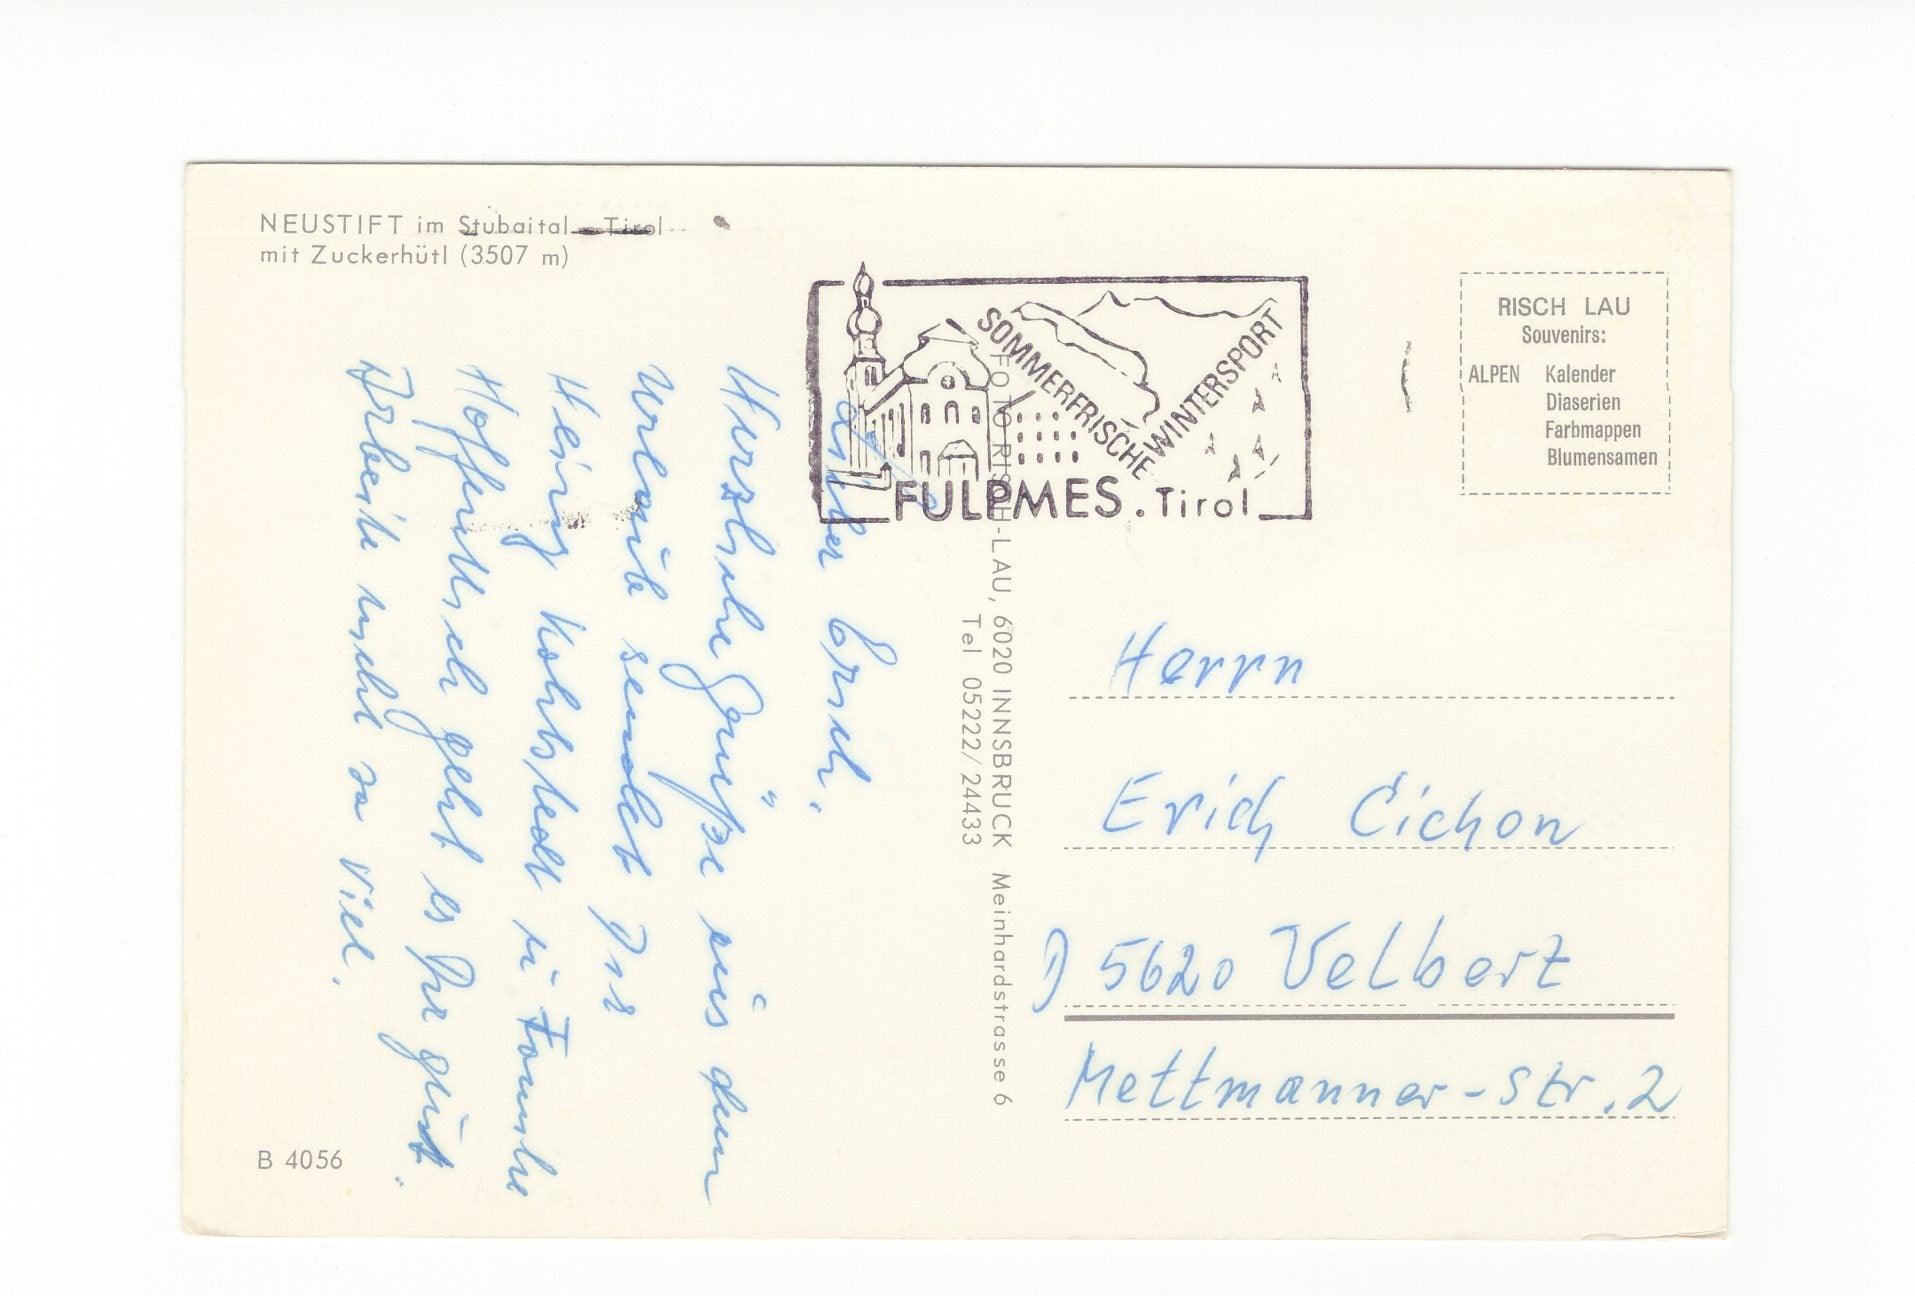 NEUSTIFT im Stubaital - Tirol
mit Zuckerhütl (3507 m)
SOMMERFRISCHE
WINTERSPORT
FULPMES . Tirol
RISCH LAU
Souvenirs:
ALPEN Kalender
Diaserien
Farbmappen
Blumensamen
Lieber Erich,
Herzliche Grüße aus dem
Urlaub sendet Dir
Heinz u Familie
Hoffentlich geht es Ihr gut.
Arbeite nicht so viel.
FOTO RISCH-LAU, 6020 INNSBRUCK Meinhardstrasse 6
Tel 05222/24433
Herrn
Erich Cichon
D 5620 Velbert
Mettmanner-Str. 2
B 4056